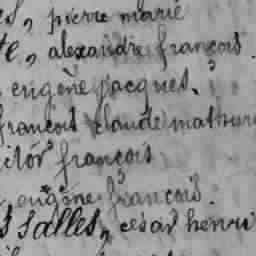 , pierre marie
, alexandre françois.
eugène jacques.
françois claude mathur
ctor françois
eugène françois.
salles, césar henri